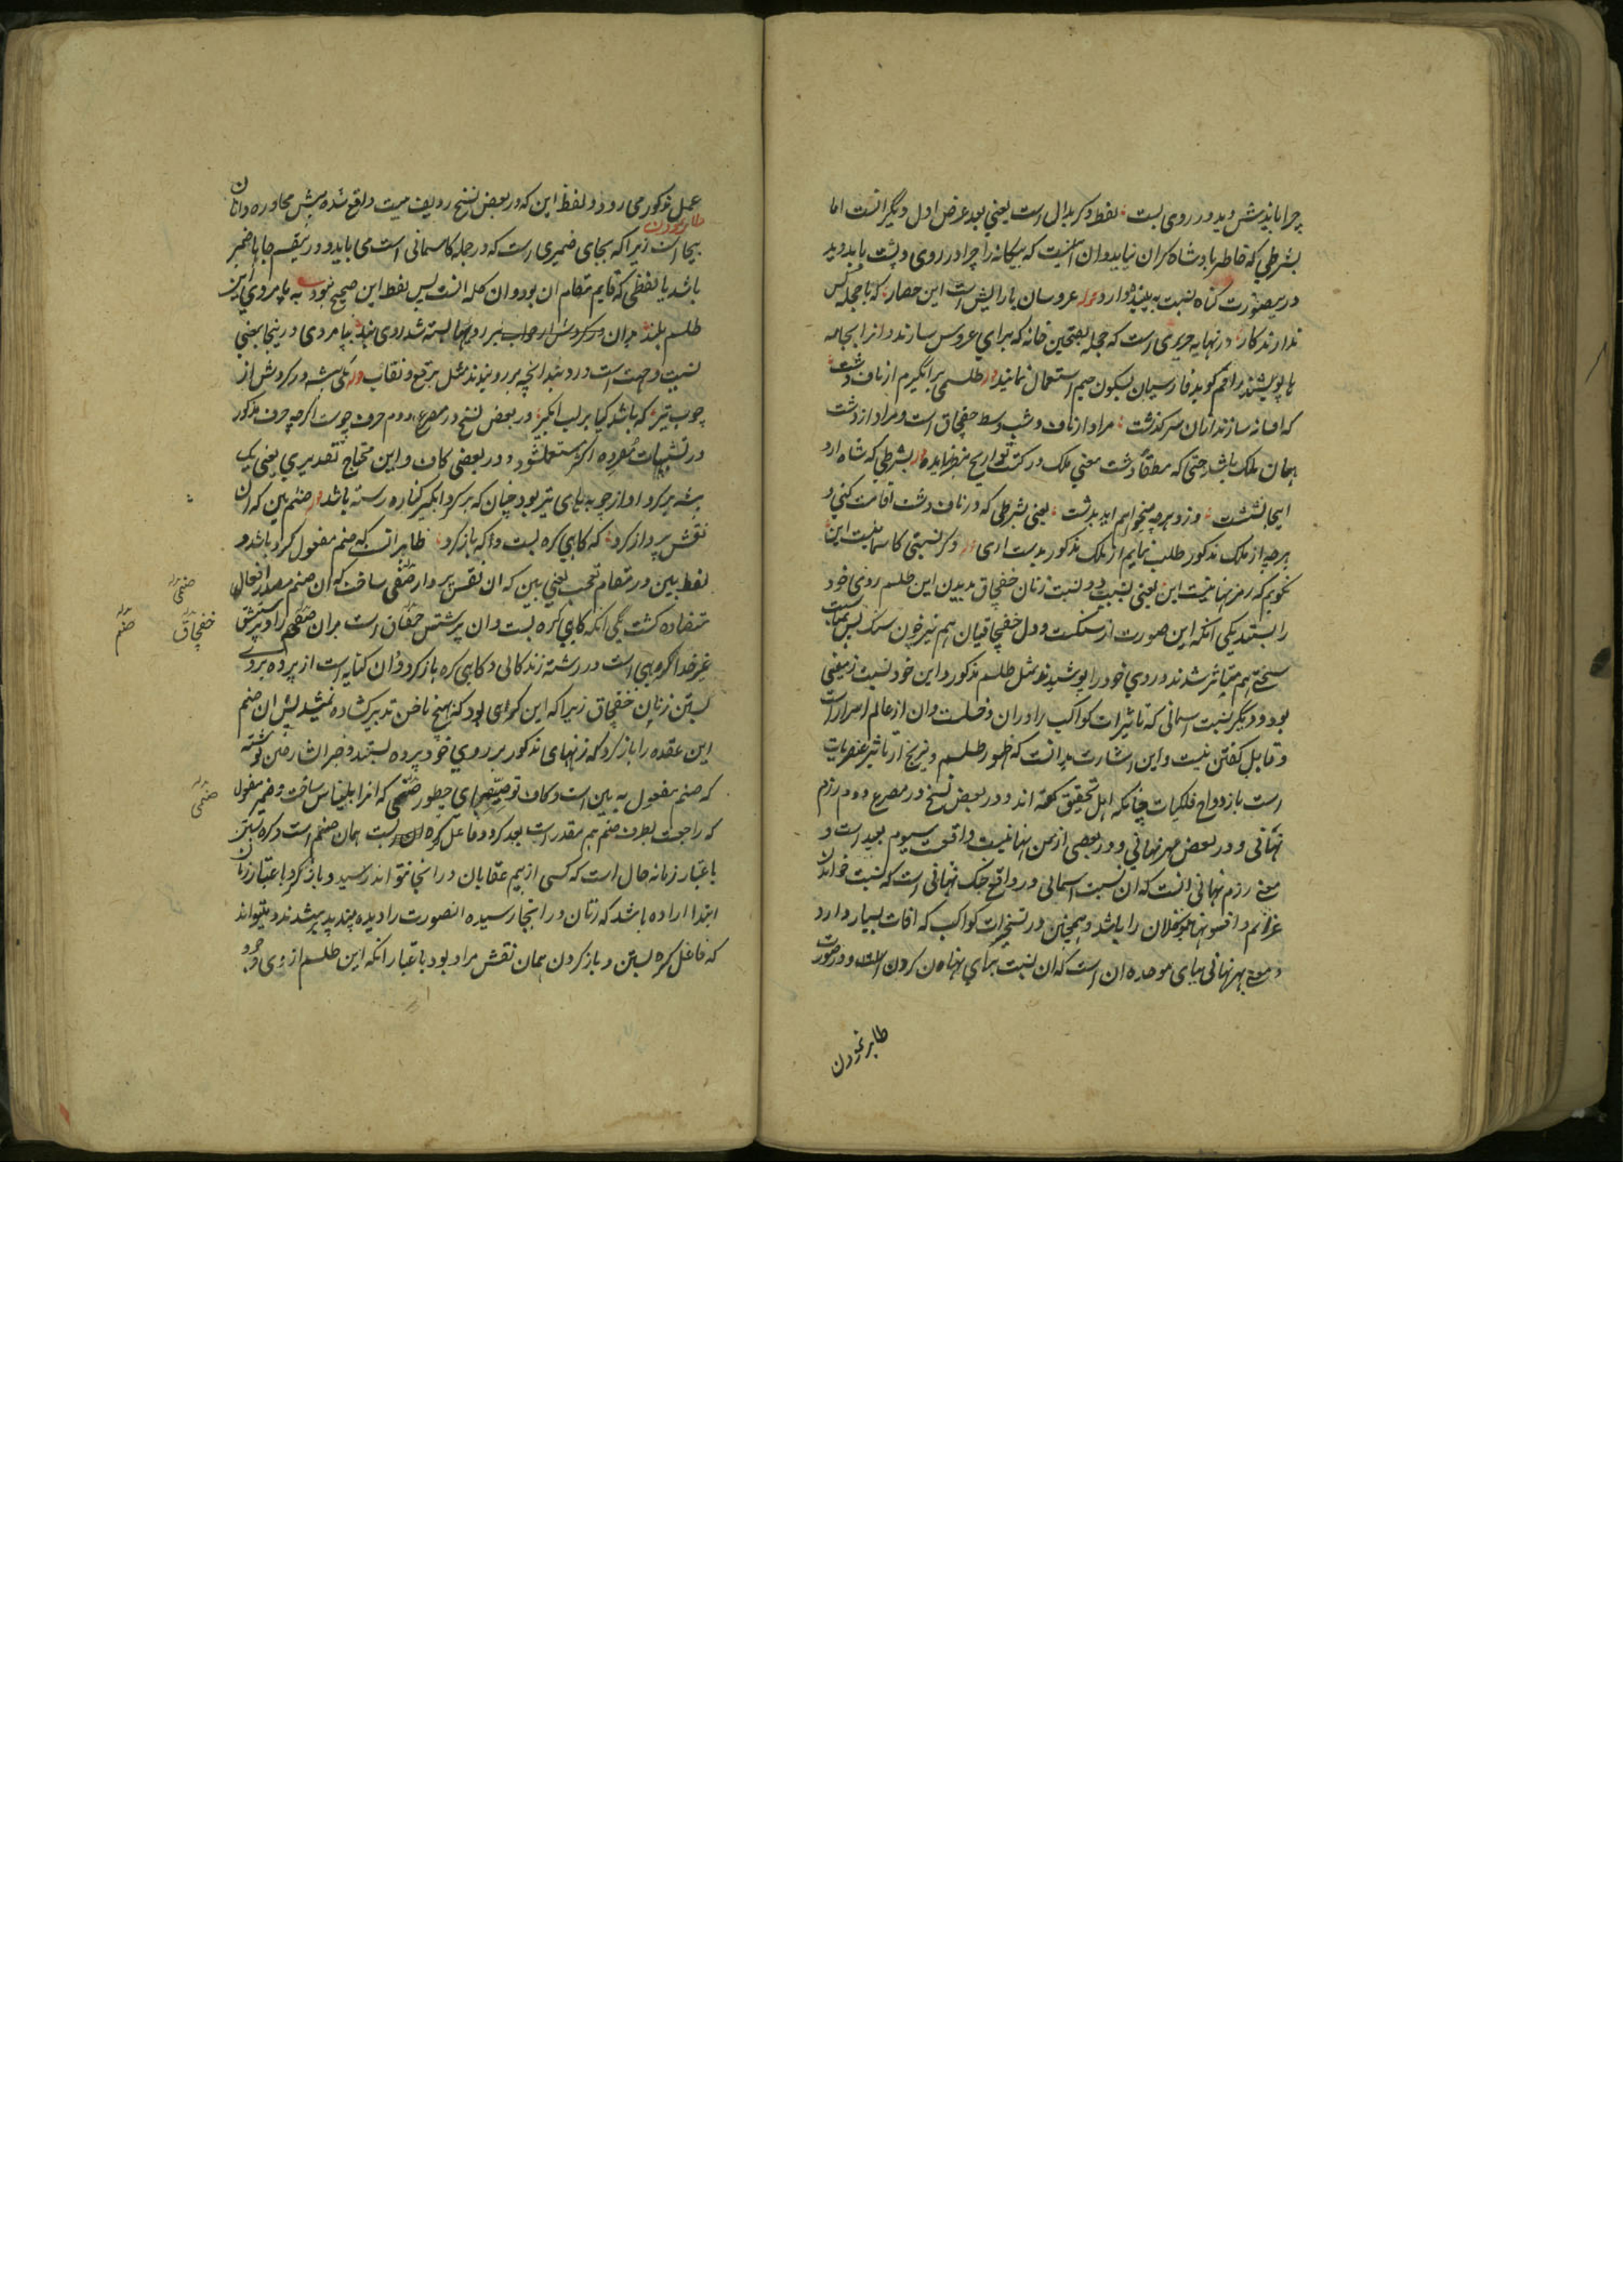 چرا باید پیش دید در روی بست لفظ دکر بدال است یعنی بعد عرض اول دیگر آنست اما
بشرطی که خاطر پادشاه کران نیاید و ان اینست که بیکانه را چرا در روی و پشت باید دید
درینصورت کناه نسبت به بیننده دارد عروسان بارایش این حصار که با حجله کس
ندارند کار در نهایه جزری است که حجله بفتحین خانه که برای عروس سازند و انرا بجامه
ها پوشند راقم کوید فارسیان بسکون جیم استعمال نمایند طلسمی برانگیزم از ناف دشت
که افسانه سازند ازان سرگذشت مراد از ناف دشت وسط خفچاق است و مراد از دشت
همان ملک باشد حتی که مطلقا دشت معنی ملک در کتب تواریخ بنظر امده بشرطی که شاه ارد
اینجا نشست وزو هر چه میخواهم اید بدست یعنی بشرطی که در ناف دشت اقامت کنی و
هر چه از ملک مذکور طلب نمایم از ملک مذکور بدست اری وکر نسبتی کاسمانیست این
نکویم که رمز نهانیست این یعنی بسبب دو نسبت زنان خفچاق بدیدن این طلسم روی خود
را بستند یکی انکه این صورت از سنکست و دل خفچاقیان هم نیز چون سنک پس بمناسبت
سختی هم متاثر شدند و روی خود را پوشیدند مثل طلسم مذکور و این خود نسبت زمینی
بود و دیگر نسبت اسمانی که تاثیرات کواکب را دران دخلست و ان از عالم اسرار است
و قابل کفتن نیست و این اشارت بدانست که ظهور طلسم و نیرنج از تاثیر عنصریات
است بازدواج فلکیات چنانکه اهل تحقیق کفته اند و در بعض نسخ در مصرع دوم رزم
نهانی و در بعض مهر نهانی و در بعضی از من نهانیست واقعست سیوم بعید است و
معنی رزم نهانی انست که ان نسبت اسمانی در واقع جنک نهانی است که نسبت خواندن
عزایم و افسونها موکلان را باشد و همچنین در تسخیرات کواکب که افات بسیار دارد
و معنی بهر نهانی ببای موحده ان است که ان نسبت برای پنهان کردن است و درصورت
ظاهر نمودن
عمل مذکور می رود و لفظ این که در بعض نسخ ردیف بیت واقع شده پیش محاوره دانان
ظاهر نمودن
بیجا است زیرا که بجای ضمیری است که در جمله کاسمانی است می باید و در یقسم جاها ضمیر
باشد یا لفظی که قایم مقام ان بود و ان کلمه انست پس لفظ این صحیح نبود به پامردی این
طلسم بلند بران روی‌ها بسته شد روی بند پامردی درینجا بمعنی
نسبت و جهت است و رو بند انچه بر رو بندند مثل برقع و نقاب یکی بیشه در کردش از
چوب تیر که باشد کیا بر لب ابکیر در بعض نسخ در مصرع دوم حرف چو است اکرچه حرف مذکور
در تشبیهات مفرده اکثر مستعمل شود و در بعضی کان و این محتاج تقدیری یعنی یک
بیشه بر کرد او از چوبه های تیر بود چنان که بر کرد ابکیر کناره رسته باشد صنم بین که ان
نقش پرداز کرد که کاهی کره بست و که باز کرد ظاهر انست که صنم مفعول کرد باشد و
لفظ بین در مقام تعجب یعنی ببین که ان نقش پرداز صنمی ساخت که ان صنم مصدر افعال
متضاده کشت یکی انکه کاهی کره بست و ان پرستش خفچاق است بران صنم را و پرستش
غیر خدا کرهی است در رشته زندکانی و کاهی کره باز کرد و ان کنایه است از پرده بر روی
بستن زنان خفچاق زیرا که این کرهی بود که بهیچ ناخن تدبیر کشاده نمیشد پس ان صنم
این عقده را باز کرد که زنهای مذکور بر روی خود پرده بستند و خیر الشارحین نوشته
که صنم مفعول به بین است و کاف توصیف برای چطور صنمی که انرا بلیناس ساخت و ضمیر مفعول
که راجعست بطرف صنم هم مقدر است بعد کرد و فاعل کره بست همان صنم است و کره بستن
باعتبار زمانه حال است که کسی از بیم عقابان در انجا نتواند رسید و باز کرد باعتبار زمان
ابتدا اراده باشد که زنان در انجا رسیده انصورت را دیده پند پذیر شدند و میتواند
که فاعل کره بستن و باز کردن همان نقش مراد بود باعتبار انکه این طلسم از وی
صنمی
خفچاق
صنم
صنمی